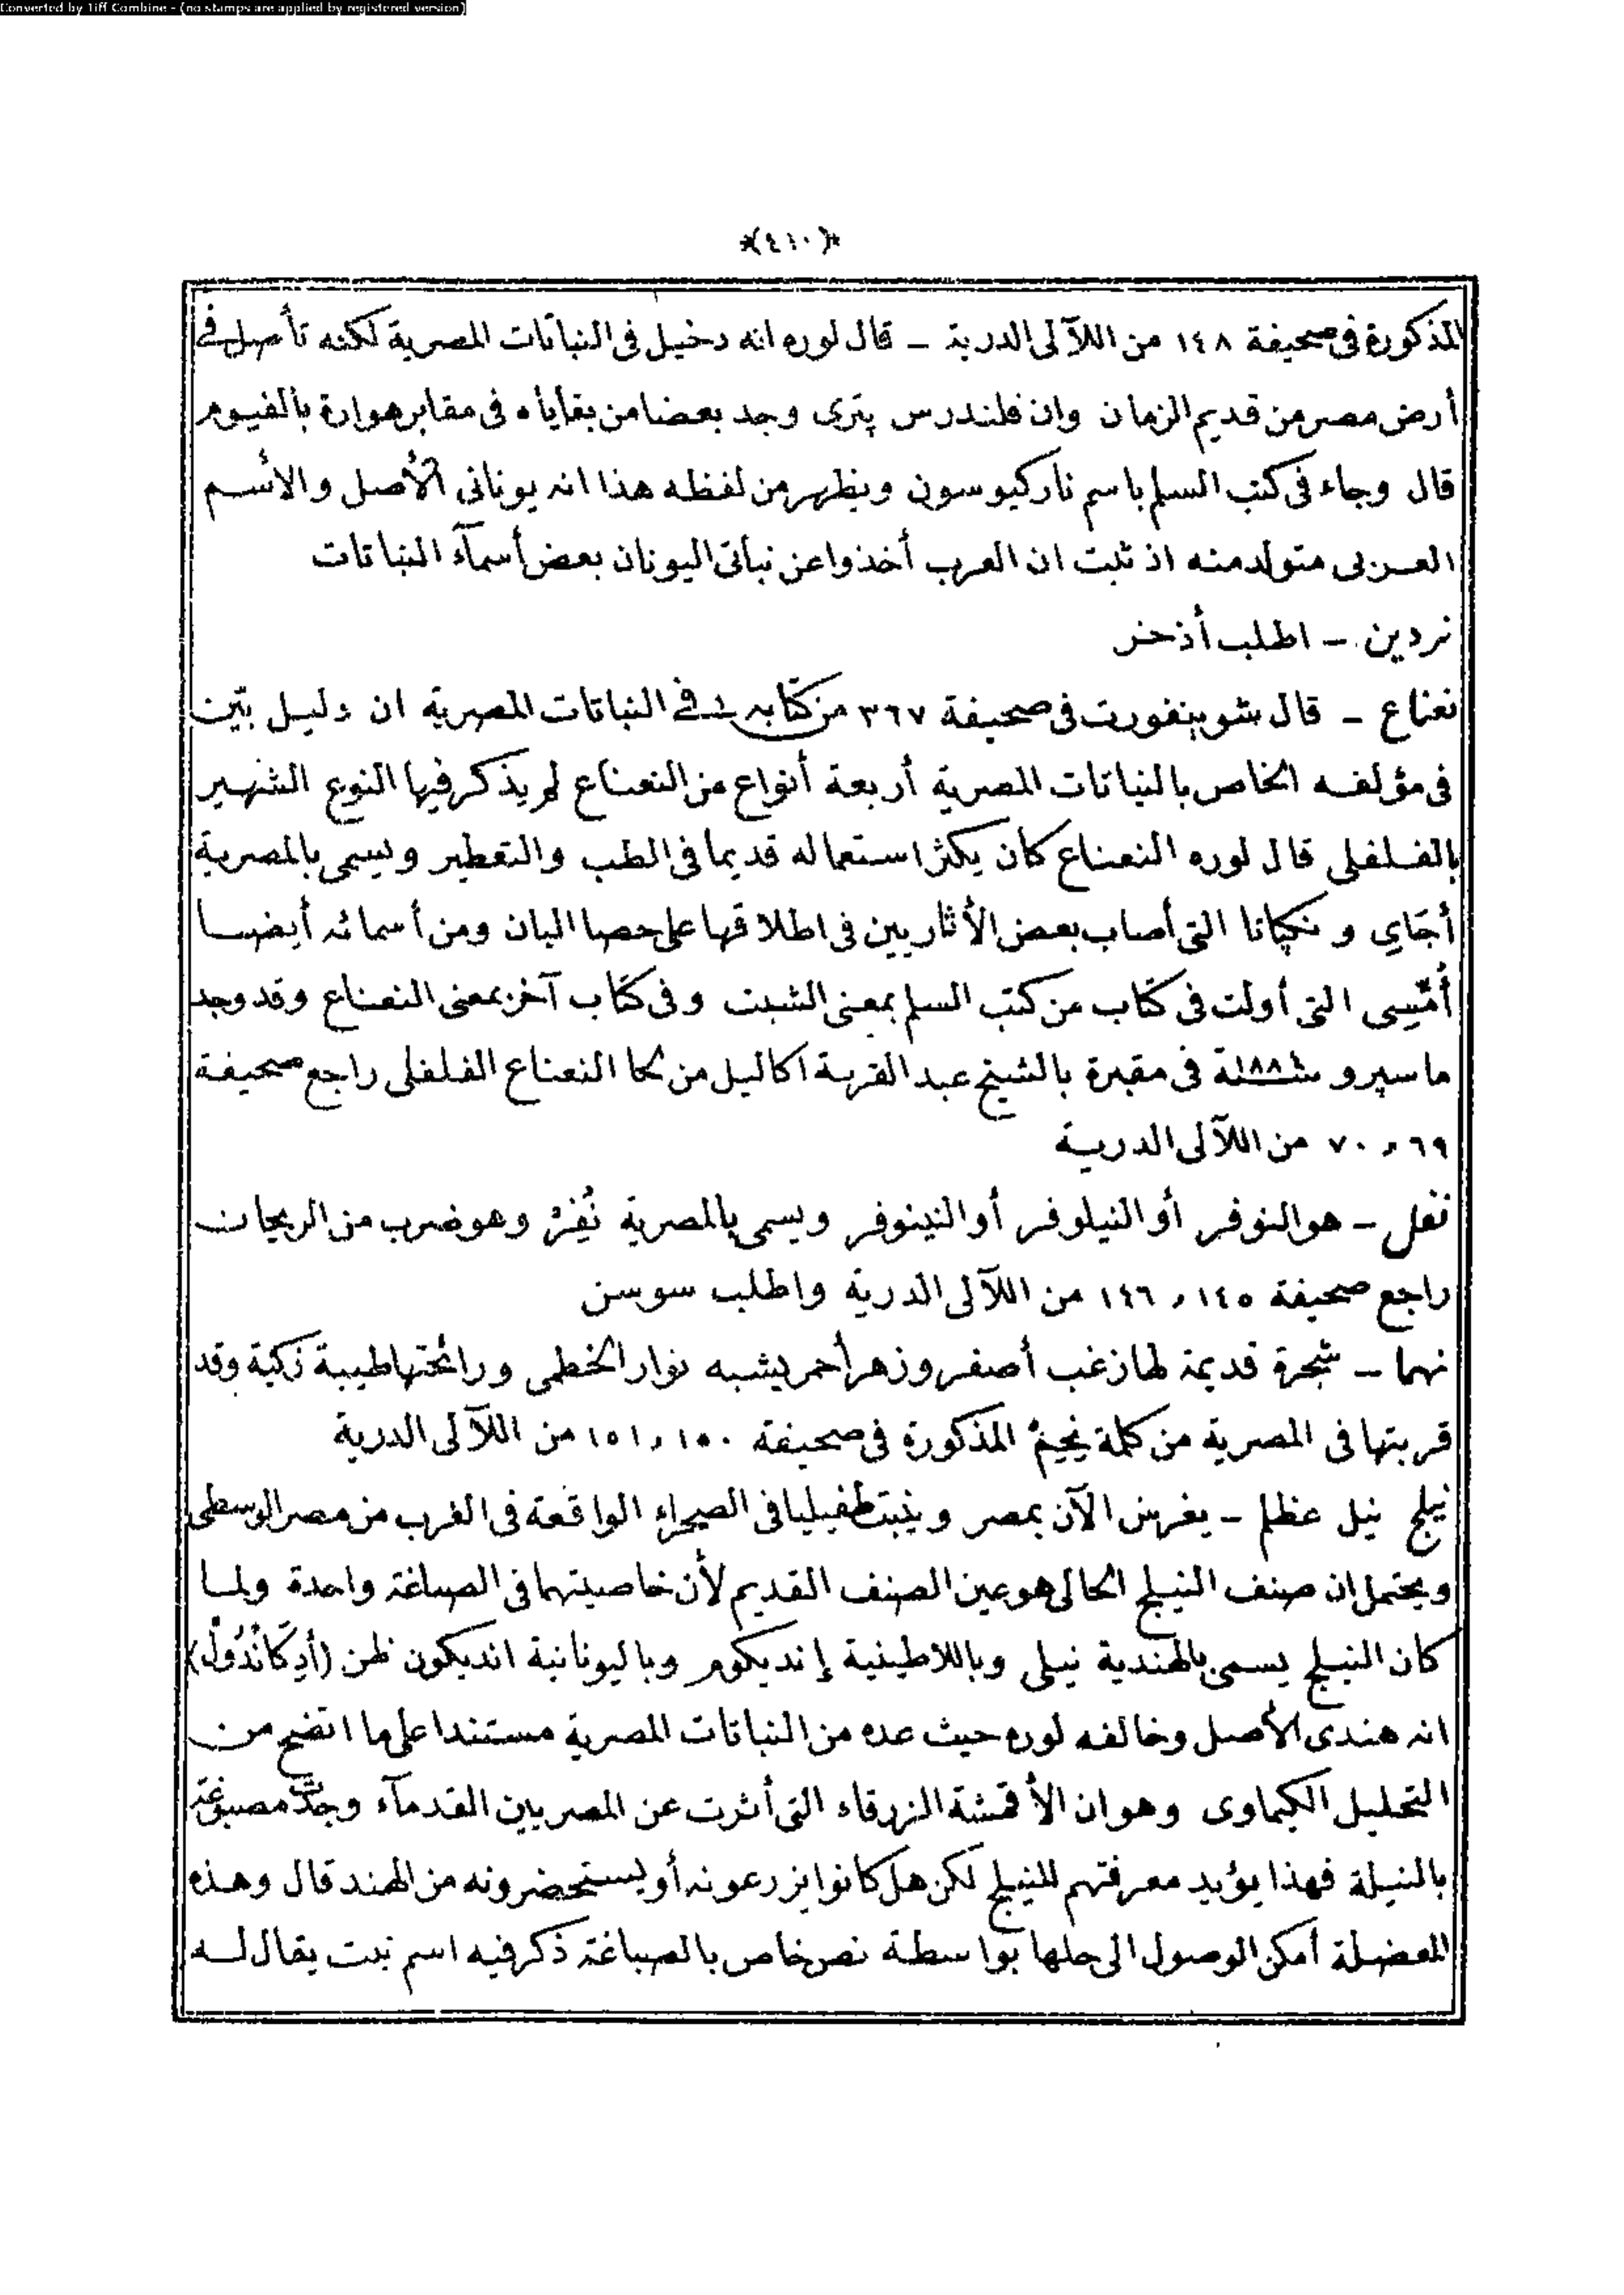 Converted by Tiff Combine - (no stamps are applied by registered version)
*(٤١٠)*
المذكورة فى صحيفة ١٤٨ من اللآلى الدرية ـ قال لوره انه دخيل فى النباتات المصرية لكنه تأصل فى
أرض مصر من قديم الزمان وان فلندرس پترى وجد بعضا من بقاياه فى مقابر هوارة بالفيوم
قال وجاء فى كتب السلم باسم ناركيوسون ويظهر من لفظه هذا انه يونانى الأصل والأسم
العربى متولد منه اذ ثبت ان العرب أخذوا عن نباتى اليونان بعض أسمآء النباتات
نردين ـ اطلب أذخر
نعناع ـ قال شوينفورت فى صحيفة ٣٦٧ من كتابه فى النباتات المصرية ان دليل بيّن
فى مؤلفه الخاص بالنباتات المصرية أربعة أنواع من النعناع لم يذكر فيها النوع الشهير
بالفلفلى قال لوره النعناع كان يكثر استعماله قديما فى الطب والتعطير ويسمى بالمصرية
أجَاي و نكپاتا التى أصاب بعض الأثاريين فى اطلاقها على حصا البان ومن أسمائه أيضا
أمّيسى التى أولت فى كتاب من كتب السلم بمعنى الشبت وفى كتاب آخر بمعنى النعناع وقد وجد
ماسپرو سنة ١٨٨٤ فى مقبرة بالشيخ عبد القرنة اكاليل من لحا النعناع الفلفلى راجع صحيفة
٦٩ و ٧٠ من اللآلى الدرية
نفل ـ هو النوفر أو النيلوفر أو النينوفر ويسمى بالمصرية نُفِرْ وهو ضرب من الريحان
راجع صحيفة ١٤٥ و ١٤٦ من اللآلى الدرية واطلب سوسن
نهما ـ شجرة قديمة لها زغب أصفر وزهر أحمر يشبه نوار الخطمى ورائحتها طيبة زكية وقد
قربتها فى المصرية من كلمة المذكورة فى صحيفة ١٥٠ و ١٥١ من اللآلى الدرية
نيلج نيل عظلم ـ يغرس الآن بمصر وينبت طفيليا فى الصحراء الواقعة فى الغرب من مصر الوسطى
ويحتمل ان صنف النيلج الحالى هو عين الصنف القديم لأن خاصيتهما فى الصباغة واحدة ولما
كان النيلج يسمى بالهندية نيلى وباللاطينية إنديكوم وباليونانية انديكون ظن (أدِكَانْدُولْ)
انه هندى الأصل وخالفه لوره حيث عده من النباتات المصرية مستندا على ما اتضح من
التحليل الكيماوى وهو ان الأقمشة الزرقاء التى أثرت عن المصريين القدمآء وجدت مصبوغة
بالنيلة فهذا يؤيد معرفتهم للنيلج لكن هل كانوا يزرعونه أو يستحضرونه من الهند قال وهذه
المعضلة أمكن الوصول الى حلها بواسطة نص خاص بالصباغة ذكر فيه اسم نبت يقال له